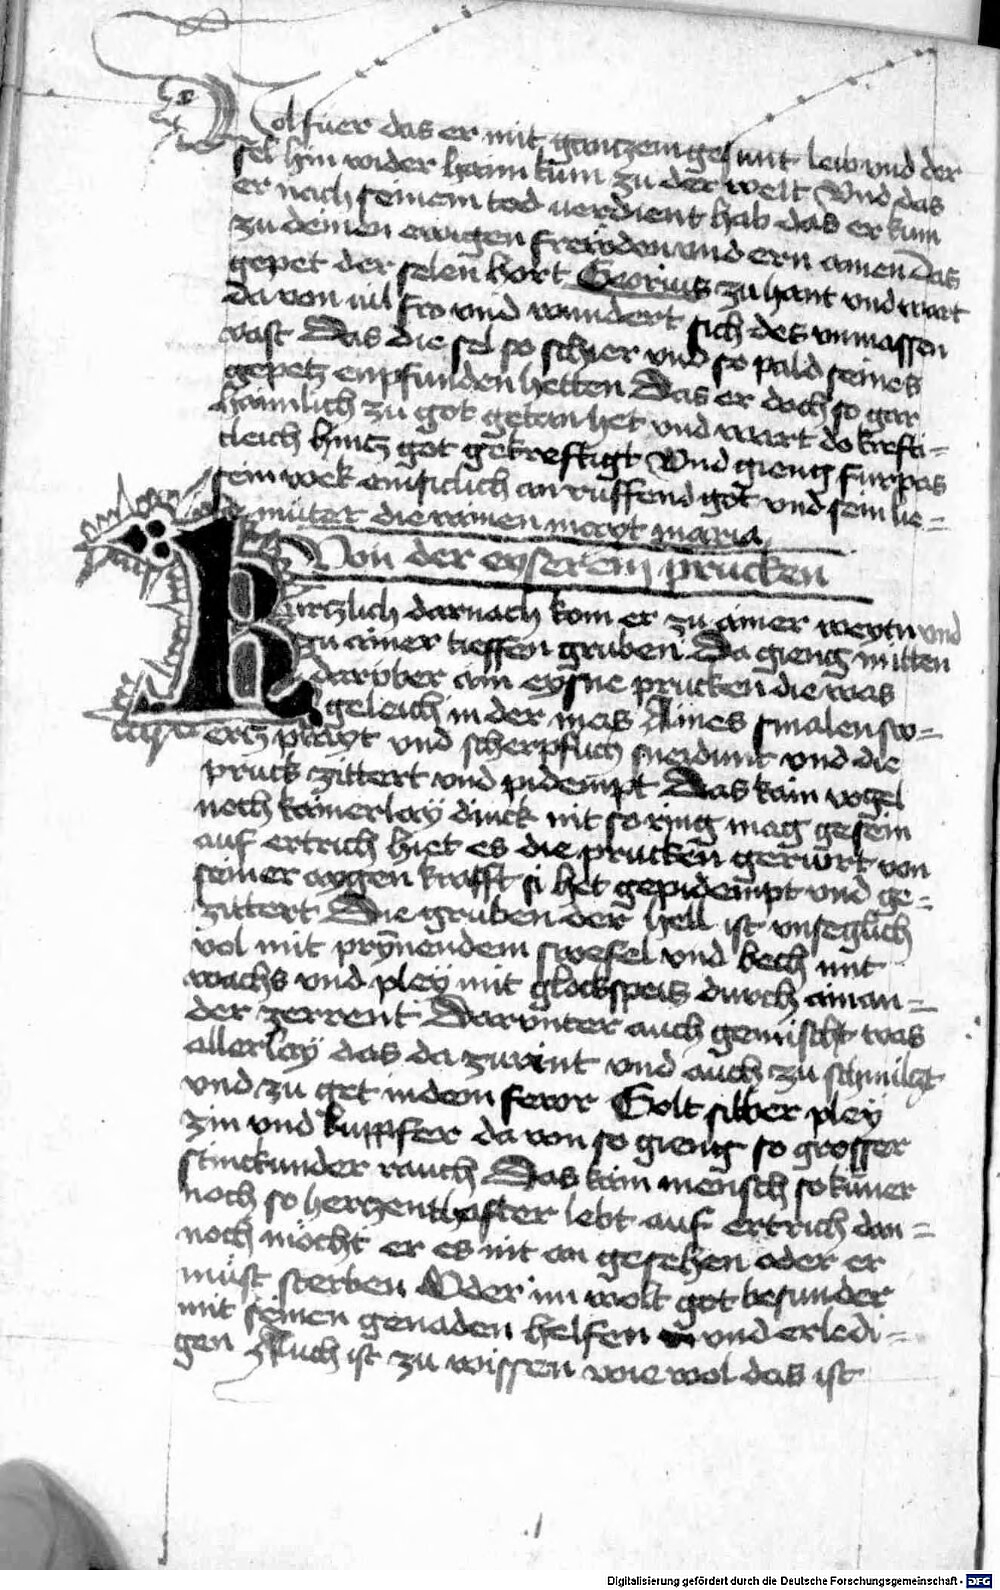 Volfuer das er mit gantzem gesunt leib und der
sel hin wider haim kum zu der welt Und das
er nach seinem tod verdient hab das er kum
zu deinen ewigen freyden vnd ern amen Das
gepet der selen hort Georius zu hant vnd wart
da von vil fro vnd wundert sich des vnmassen
vast Das die sel so schier vnd so pald seines
gepetz enpfunden hetten Das er doch so gar
haimlich zu got getan het vnd wart do krefti=
cleich hintz got gekreftigt Und gieng furpas
sein wek einsiclich an ruffend got vnd sein lie=
be mueter die rainen mayt maria
Von der eyserein prucken
Kurtzlich darnach kom er zu ainer weytn vnd
zu ainer tieffen gruben Da gieng mitten
daruber ain eysne prucken die was
geleich in der mas Aines smalen sw=
ertz prayt vnd scherpflich sneidunt vnd die
pruck zittert vnd pidempt Das kain vogel
noch kainerlay dinck nit so ring mag gesein
auf ertrich hiet es die prucken gerürt von
seiner aygen krafft si het gepidempt vnd ge=
zittert Die gruben der hell ist vnseglich
vol mit prynendem swefel vnd bech mit
wachs vnd pley mit glockspeis durch ainan=
der zerrent Darunter auch gemischt was
allerlay das da zurint vnd auch zu schmiltzt
vnd zu get in dem fewr Golt silber pley
zin vnd kuppfer da von so gieng so grosser
stinckunder rauch Das kain mensch so küner
noch so hertzenthafter lebt auf ertrich dan=
noch möcht er es nit an gesehen oder er
müst sterben Oder im wolt got besunder
mit seinen genaden helfen vnd erledi=
gen Auch ist zu wissen wie wol das ist
Digitalisierung gefördert durch die Deutsche Forschungsgemeinschaft - DFG